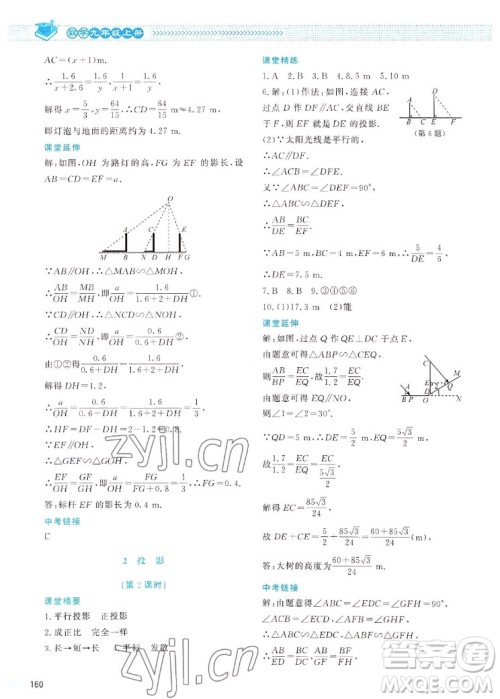 数学九年级上册
AC=(x+1)m.
∴ 1.6/(x+2.6) = 1.6/(x+1)
解得 x=5/3, y=64/15, ∴CD=64/15≈4.27 m.
即灯泡与地面的距离约为 4.27 m.
课堂延伸
解:如图,OH 为路灯的高,FG 为 EF 的影长,设
AB=CD=EF=a.
O
M B A N D H F G
∵AB∥OH,∴△MAB∽△MOH,
∴AB/OH=MB/MH,即 a/OH=1.6/(1.6+2+DH)①.
∵CD∥OH,∴△NCD∽△NOH,
∴CD/OH=ND/NH,即 a/OH=0.6/(0.6+DH)②.
由①②得 0.6/(0.6+DH)=1.6/(1.6+2+DH).
解得 DH=1.2.
∴a/OH=0.6/(0.6+DH)=0.6/(0.6+1.2)=1/3.
∴HF=DF-DH=2-1.2=0.8.
∵EF∥OH,
∴△GEF∽△GOH,
∴EF/OH=FG/GH,即 a/OH=FG/(FG+0.8)=1/3,∴FG=0.4.
答:标杆 EF 的影长为 0.4 m.
中考链接
C
2 投 影
(第 2 课时)
课堂精要
1.平行投影 正投影
2.成正比 完全一样
3.长→短→长 平行 发散
160
课堂精练
1.A 2.B 3.B 4.8.5 m 5.10 m
6.解:(1)作法:如图,连接 AC,
过点 D 作 DF∥AC,交直线 BE
于 F,则 EF 就是 DE 的投影.
(2)∵太阳光线是平行的,
(第 6 题)
∴AC∥DF.
∴∠ACB=∠DFE.
又∵∠ABC=∠DEF=90°,
∴△ABC∽△DEF.
∴AB/DE=BC/EF.
∵AB=5 m,BC=4 m,EF=6 m,∴5/DE=4/6.
∴DE=7.5 m.
7.B 8.B 9.③④⑤⑥
10.(1)17.3 m (2)能
课堂延伸
解:如图,过点 Q 作 QE⊥DC 于点 E,
由题意可得△ABP∽△CEQ,
则 AB/BP=EC/EQ,故 1.7/1.2=EC/EQ.
由题意可得 EQ∥NO,
则∠1=∠2=30°.
故 1.7/1.2=EC/EQ=EC/(5√3/2).
解得 EC=85√3/24.
故 DE+CE=5/2+85√3/24=(60+85√3)/24.
答:大树的高度为(60+85√3)/24 m.
中考链接
解:由题意得∠ABC=∠EDC=∠GFH=90°,
∠ACB=∠ECD,∠AFB=∠GHF.
zyjl.cn
zyjl.cn